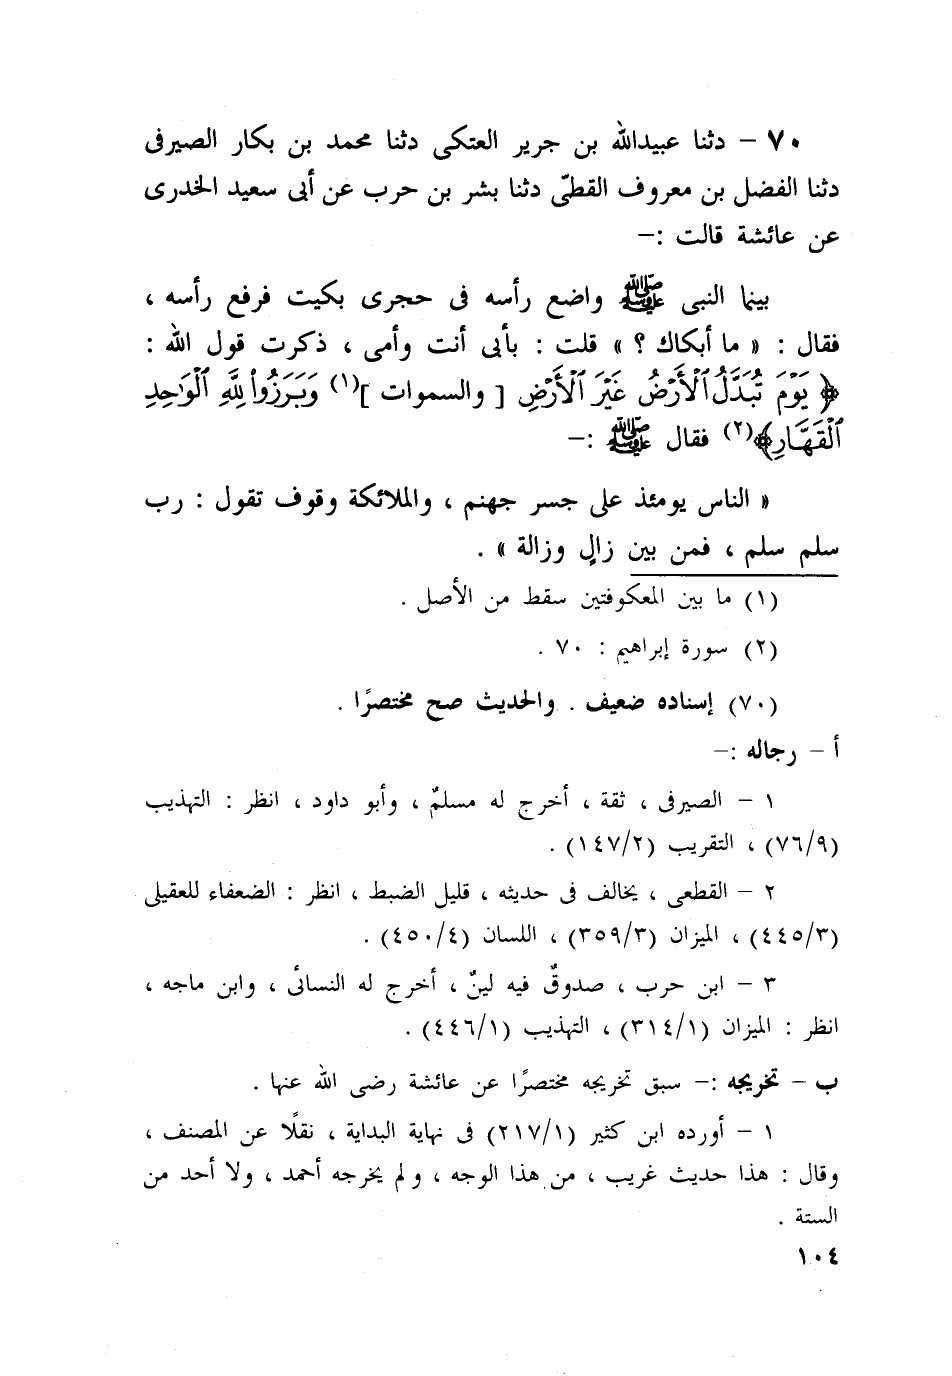 ٧٠ – دثنا عبيدالله بن جرير العتكى دثنا محمد بن بكار الصيرفى
دثنا الفضل بن معروف القطىّ دثنا بشر بن حرب عن أبى سعيد الخدرى
عن عائشة قالت :–
بينما النبى ﷺ واضع رأسه فى حجرى بكيت فرفع رأسه ،
فقال : « ما أبكاك ؟ » قلت : بأبى أنت وأمى ، ذكرت قول الله :
﴿ يَوْمَ تُبَدَّلُ ٱلْأَرْضُ غَيْرَ ٱلْأَرْضِ [ والسموات ](١) وَبَرَزُواْ لِلَّهِ ٱلْوَٰحِدِ
ٱلْقَهَّارِ﴾(٢) فقال ﷺ :–
« الناس يومئذ على جسر جهنم ، والملائكة وقوف تقول : رب
سلم سلم ، فمن بين زالٍ وزالة » .
(١) ما بين المعكوفتين سقط من الأصل .
(٢) سورة إبراهيم : ٧٠ .
(٧٠) إسناده ضعيف . والحديث صح مختصرًا .
أ – رجاله :–
١ – الصيرفى ، ثقة ، أخرج له مسلمٌ ، وأبو داود ، انظر : التهذيب
(٧٦/٩) ، التقريب (١٤٧/٢) .
٢ – القطعى ، يخالف فى حديثه ، قليل الضبط ، انظر : الضعفاء للعقيلى
(٤٤٥/٣) ، الميزان (٣٥٩/٣) ، اللسان (٤٥٠/٤) .
٣ – ابن حرب ، صدوقٌ فيه لينٌ ، أخرج له النسائى ، وابن ماجه ،
انظر : الميزان (٣١٤/١) ، التهذيب (٤٤٦/١) .
ب – تخريجه :– سبق تخريجه مختصرًا عن عائشة رضى الله عنها .
١ – أورده ابن كثير (٢١٧/١) فى نهاية البداية ، نقلًا عن المصنف ،
وقال : هذا حديث غريب ، من هذا الوجه ، ولم يخرجه أحمد ، ولا أحد من
الستة .
١٠٤